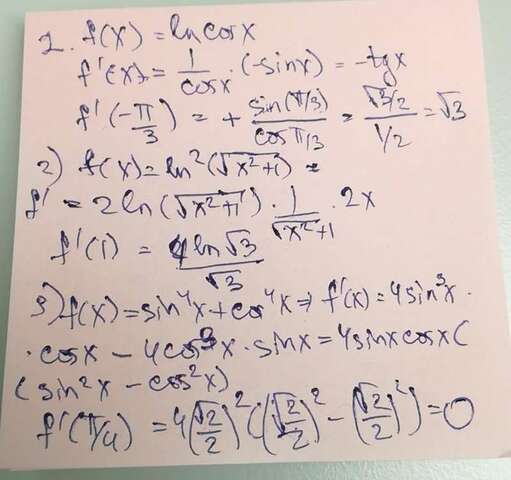 1. f(x) = ln cosx
f'(x) = 1/cosx · (-sinx) = -tgx
f'(-π/3) = + sin(π/3)/cos π/3 = (√3/2)/(1/2) = √3
2) f(x) = ln²(√x²+1) =
f' = 2 ln(√x²+1) · 1/√x²+1 · 2x
f'(1) = 4 ln√3/√3
3) f(x) = sin⁴x + cos⁴x ⇒ f'(x) = 4 sin³x ·
· cosx - 4cos³x · sinx = 4 sinx cosx (
(sin²x - cos²x)
f'(π/4) = 4(√2/2)² ((√2/2)² - (√2/2)²) = 0